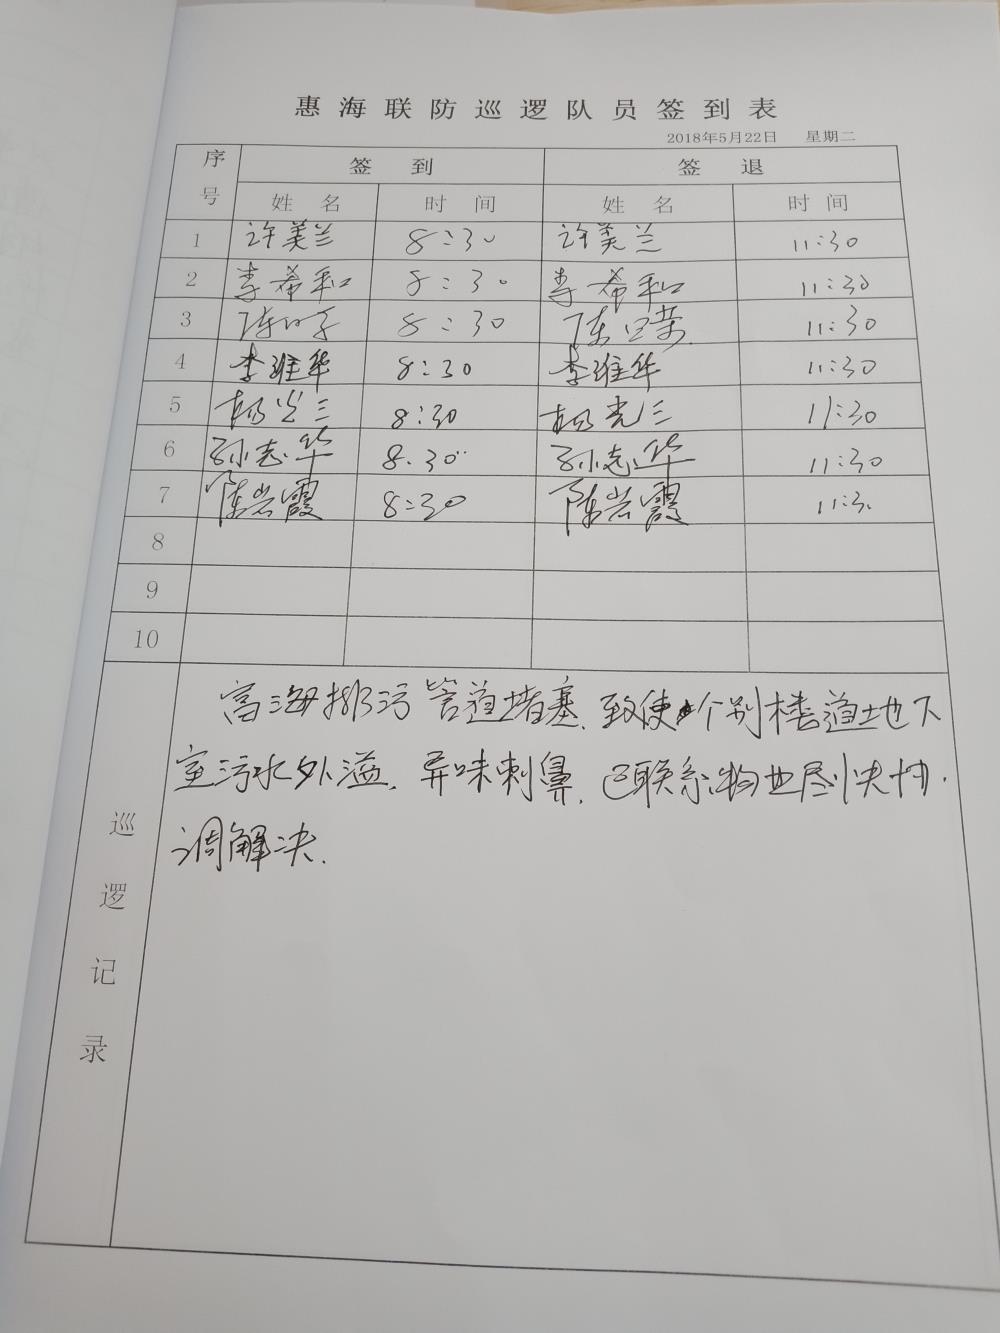 惠海联防巡逻队员签到表
2018年5月22日 星期二
序号 签到 签退
姓名 时间 姓名 时间
1 许美兰 8:30 许美兰 11:30
2 李希和 8:30 李希和 11:30
3 8:30 陈日荣 11:30
4 李维华 8:30 李维华 11:30
5 杨光三 8:30 杨光三 11:30
6 孙志华 8.30 孙志华 11:30
7 陈岩霞 8:30 陈岩霞 11:3
8
9
10
巡逻记录
富海排污管道堵塞.致使个别楼道地下
室污水外溢.异味刺鼻.已联系物业尽快协
调解决.